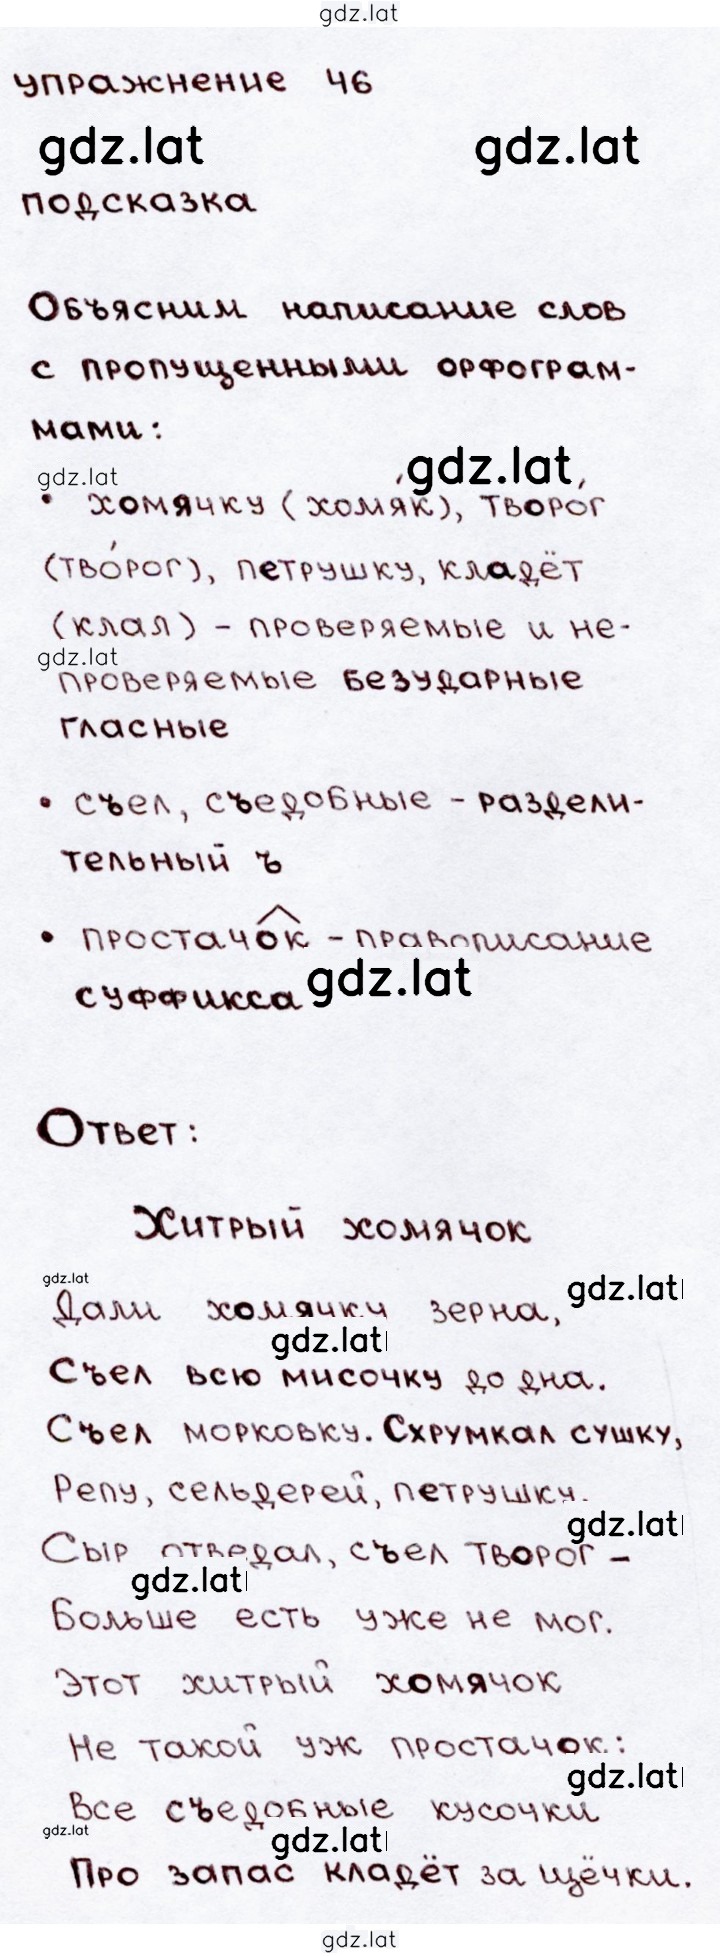 gdz.lat
упражнение 46
gdz.lat gdz.lat
подсказка
Объясним написание слов
с пропущенными орфограм-
мами:
gdz.lat gdz.lat
• хомячку (хомяк), творог
(тво́рог), петрушку, кладёт
(клал) - проверяемые и не-
gdz.lat
проверяемые безударные
гласные
• съел, съедобные - раздели-
тельный ъ
• простачок - правописание
суффикса gdz.lat
Ответ:
Хитрый хомячок
gdz.lat gdz.lat
Дали хомячку зерна,
gdz.lat
Съел всю мисочку до дна.
Съел морковку. Схрумкал сушку,
Репу, сельдерей, петрушку.
gdz.lat
Сыр отведал, съел творог -
gdz.lat
Больше есть уже не мог.
Этот хитрый хомячок
Не такой уж простачок:
gdz.lat
Все съедобные кусочки
gdz.lat gdz.lat
Про запас кладёт за щёчки.
gdz.lat